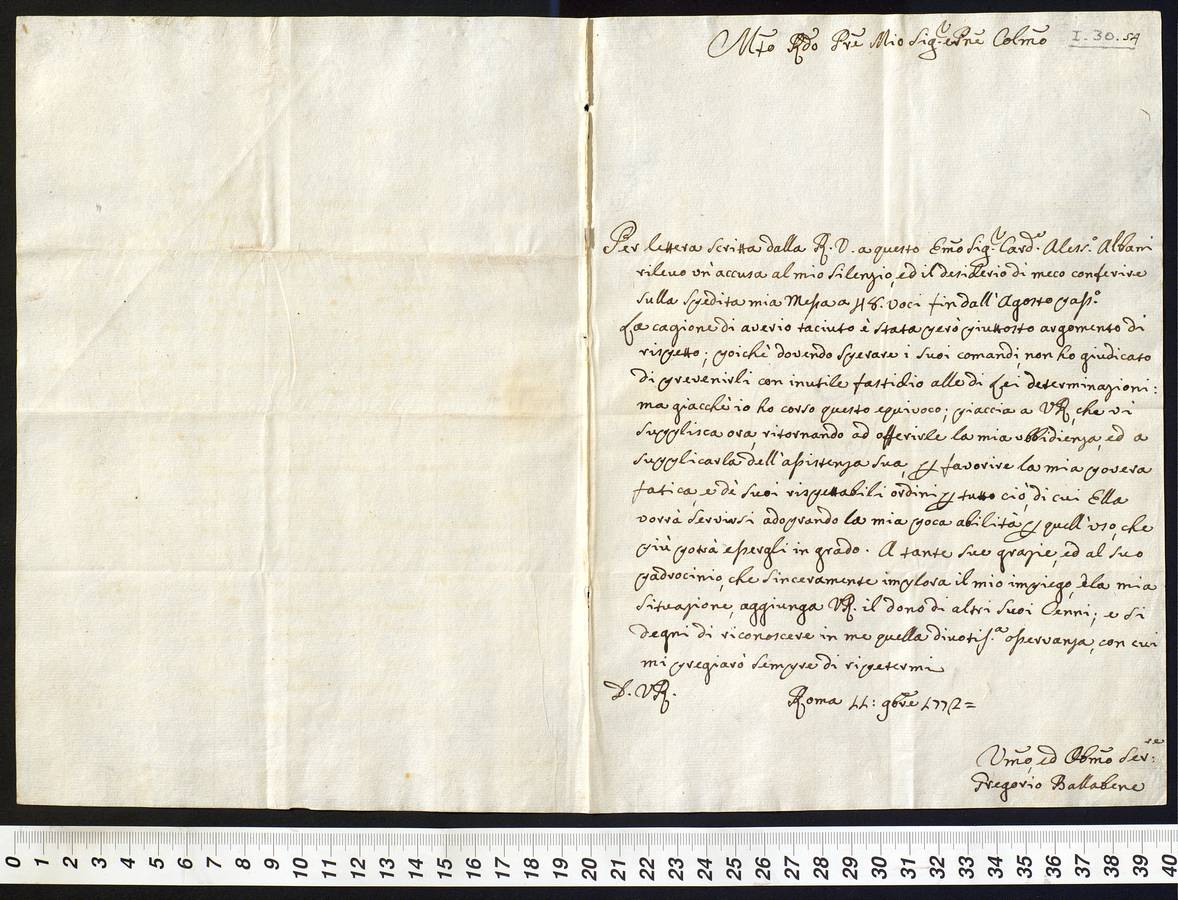 Mto Rdo Pre Mio Sigr e Pne Colmo I.30.54
Per lettera scritta dalla R. V. a questo Emo Sigr Card. Aless.o Albani
rilevo un'accusa al mio silenzio, ed il desiderio di meco conferire
sulla spedita mia Messa a 48. voci fin dall'Agosto pass.o
La cagione di averlo taciuto è stata però piuttosto argomento di
rispetto; poichè dovendo sperare i suoi comandi, non ho giudicato
di prevenirli con inutile fastidio alle di Lei determinazioni:
ma giacchè io ho corso questo equivoco; piaccia a VR, che vi
supplisca ora, ritornando ad offerirle la mia obbidienza, ed a
supplicarla dell'assistenza sua, p favorire la mia povera
fatica, e dè suoi rispettabili ordini p tutto ciò, di cui Ella
vorrà servirsi adoprando la mia poca abilità p quell'uso, che
più potrà essergli in grado. A tante sue grazie, ed al suo
padrocinio, che sinceramente implora il mio impiego, e la mia
situazione, aggiunga VR. il dono di altri suoi Cenni; e si
degni di riconoscere in me quella divotis.a osservanza, con cui
mi pregiarò sempre di ripetermi
D. VR. Roma 11: 9bre 1772=
Umo, ed Obmo Serre:
Gregorio Ballabene
0 1 2 3 4 5 6 7 8 9 10 11 12 13 14 15 16 17 18 19 20 21 22 23 24 25 26 27 28 29 30 31 32 33 34 35 36 37 38 39 40